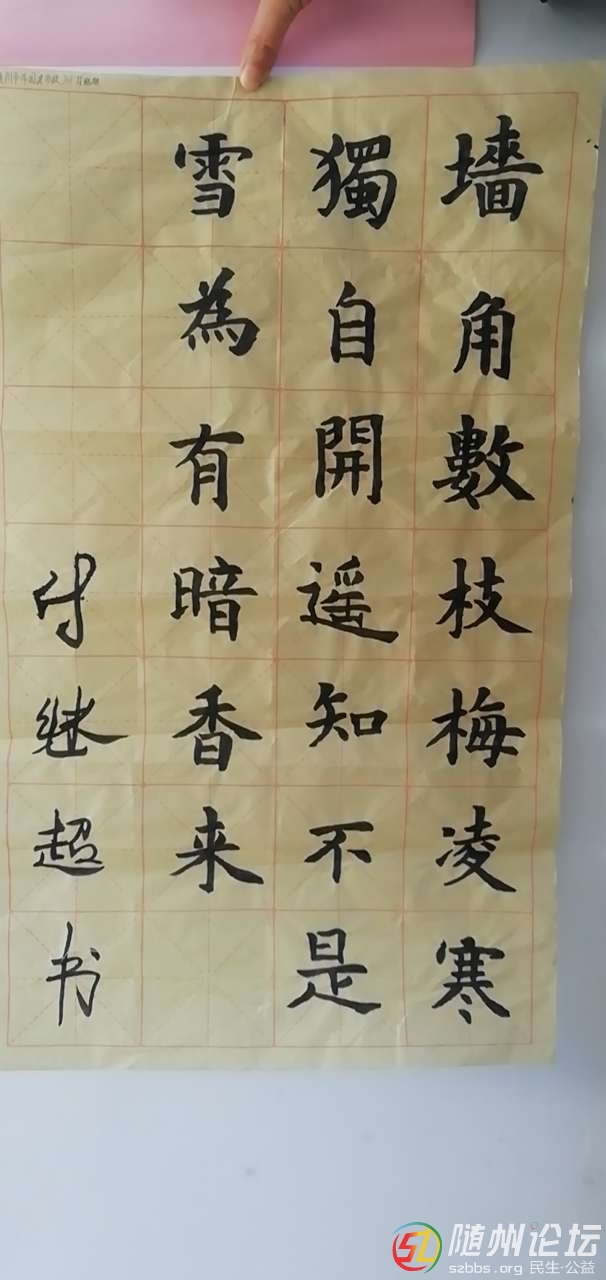 墻角數枝梅凌寒
獨自開遥知不是
雪為有暗香来
付继超书
随州论坛
szbbs.org 民生·公益